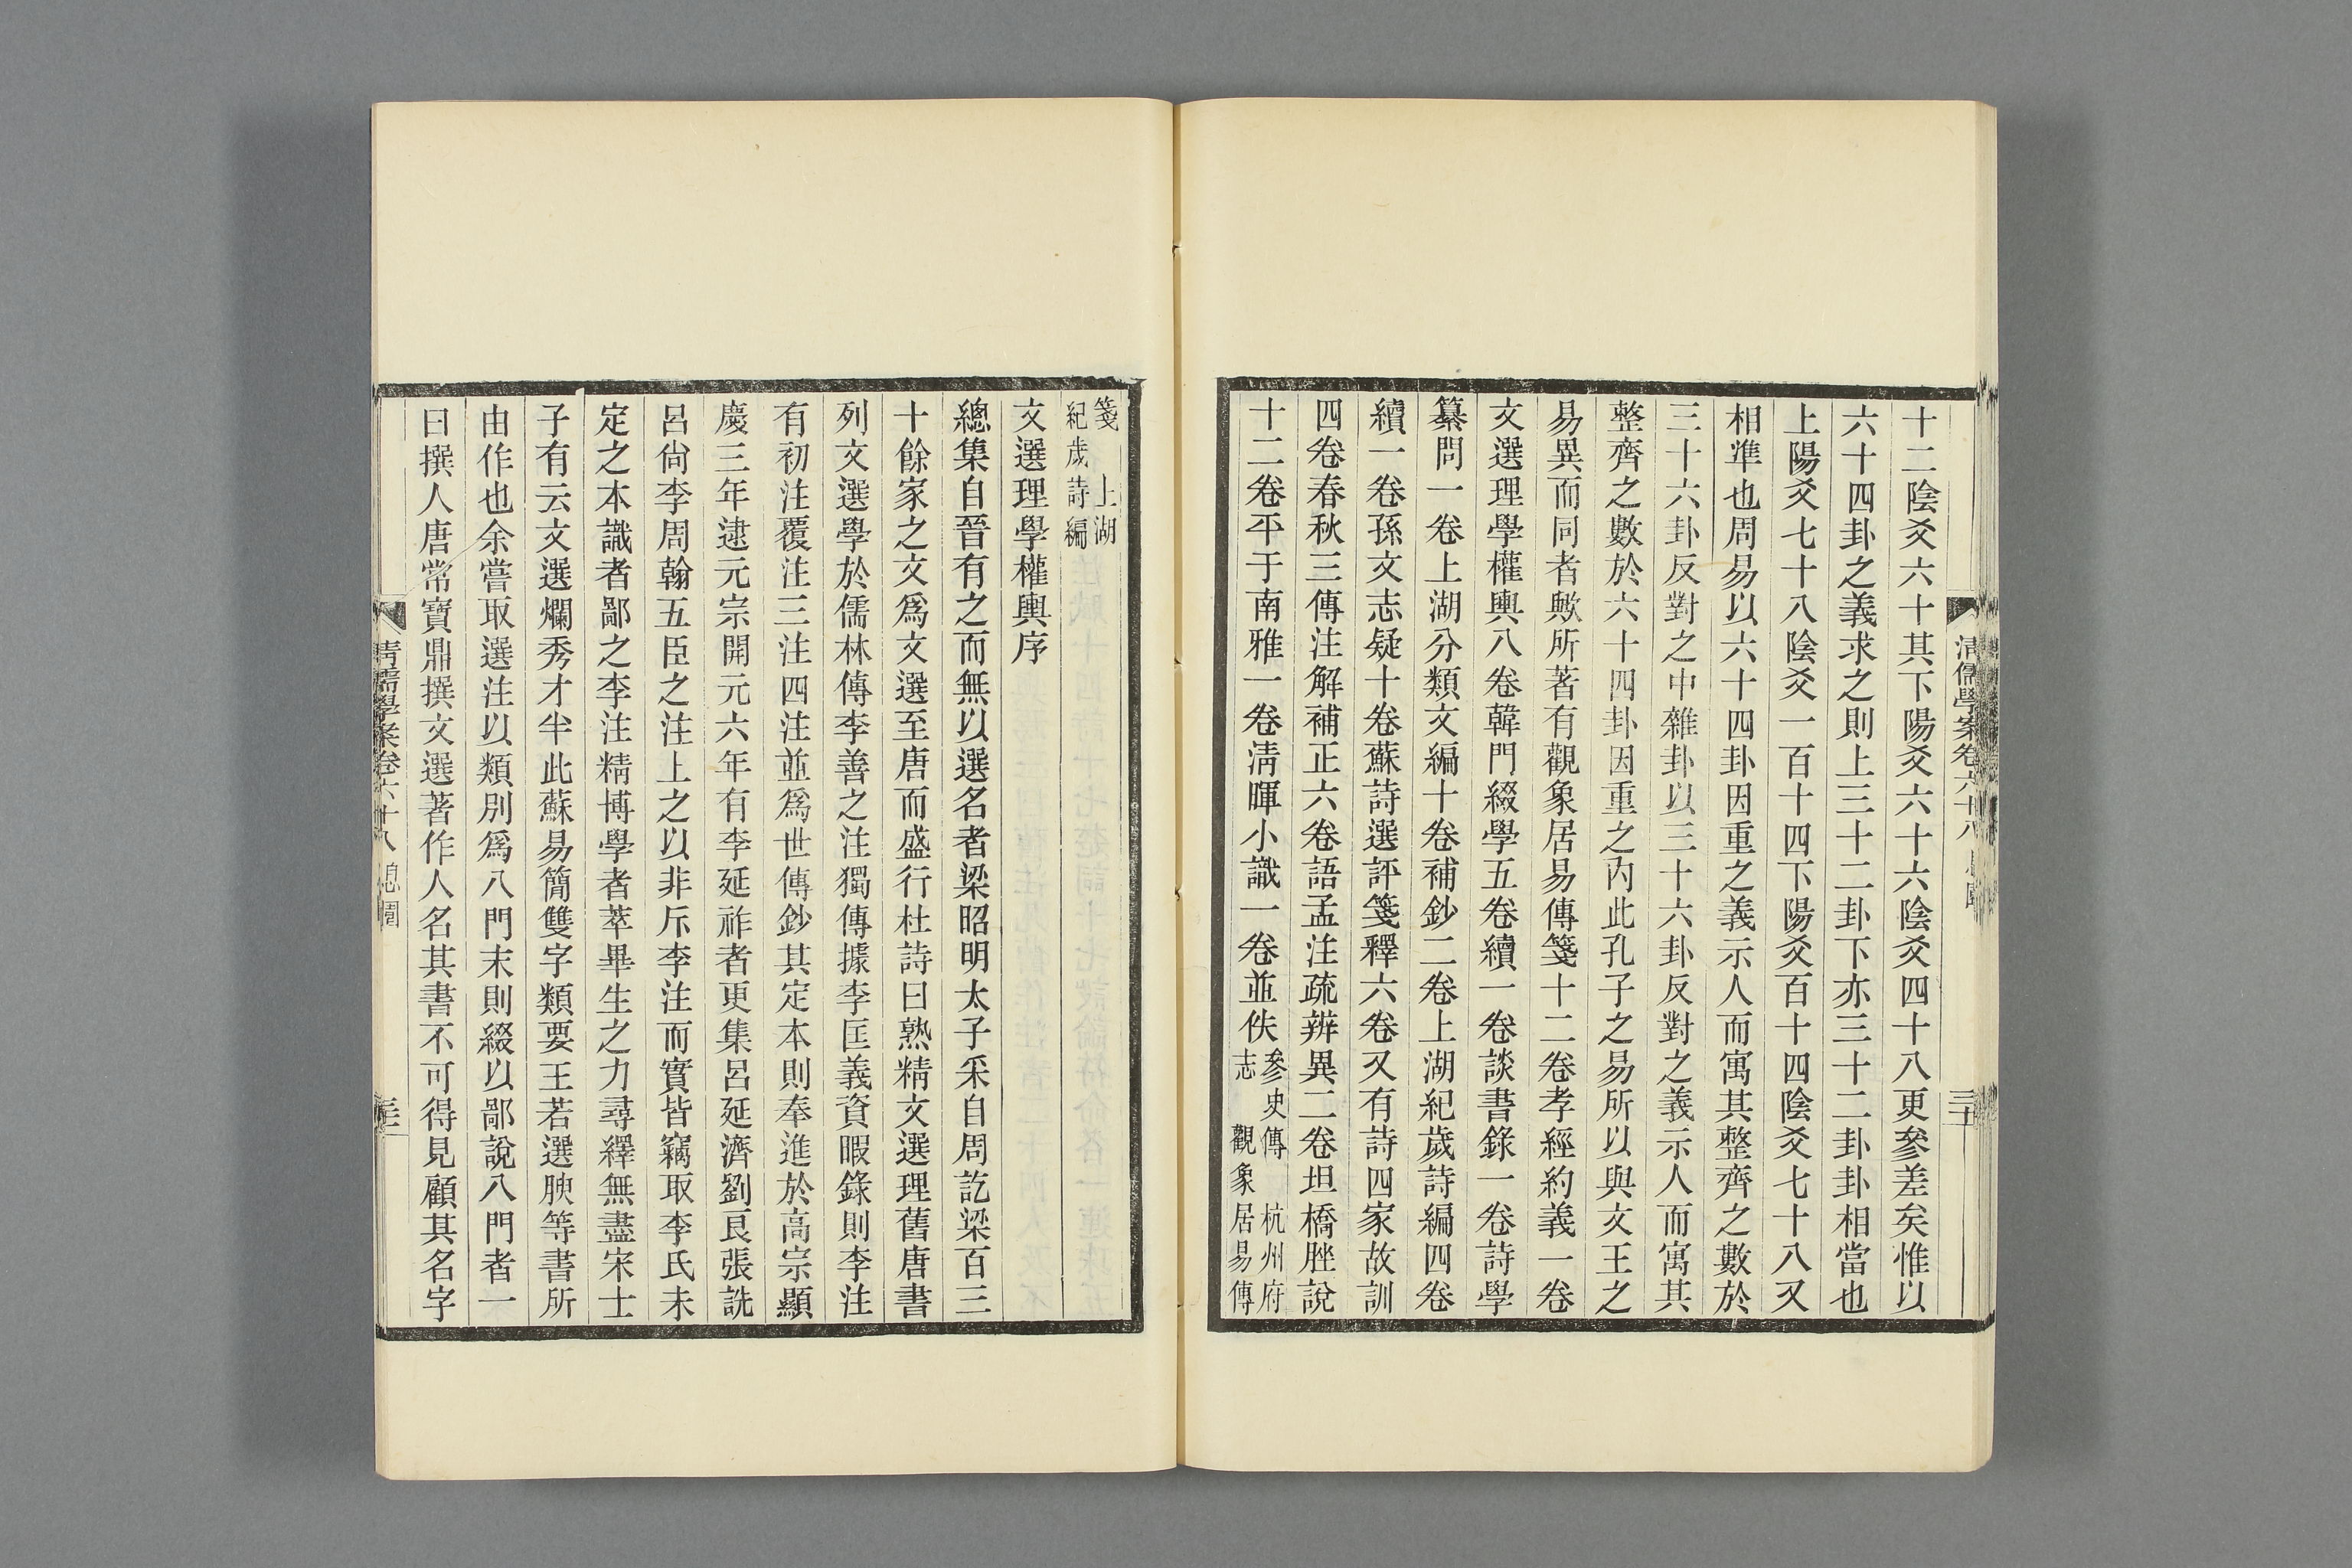 清儒學案卷六十八
三十
十二陰爻六十其下陽爻六十六陰爻四十八更參差矣惟以
六十四卦之義求之則上三十二卦下亦三十二卦卦相當也
上陽爻七十八陰爻一百十四下陽爻百十四陰爻七十八又
相準也周易以六十四卦因重之義示人而寓其整齊之數於
三十六卦反對之中雜卦以三十六卦反對之義示人而寓其
整齊之數於六十四卦因重之內此孔子之易所以與文王之
易異而同者歟所著有觀象居易傳箋十二卷孝經約義一卷
文選理學權輿八卷韓門綴學五卷續一卷談書錄一卷詩學
纂問一卷上湖分類文編十卷補鈔二卷上湖紀歲詩編四卷
續一卷孫文志疑十卷蘇詩選評箋釋六卷又有詩四家故訓
四卷春秋三傳注解補正六卷語孟注疏辨異二卷坦橋脞說
十二卷平于南雅一卷淸暉小識一卷並佚
參史傳　杭州府
志　觀象居易傳
箋　上湖
紀歲詩編
文選理學權輿序
總集自晉有之而無以選名者梁昭明太子采自周訖梁百三
十餘家之文爲文選至唐而盛行杜詩曰熟精文選理舊唐書
列文選學於儒林傳李善之注獨傳據李匡義資暇錄則李注
有初注覆注三注四注並爲世傳鈔其定本則奉進於高宗顯
慶三年逮元宗開元六年有李延祚者更集呂延濟劉良張詵
呂尙李周翰五臣之注上之以非斥李注而實皆竊取李氏未
定之本識者鄙之李注精博學者萃畢生之力尋繹無盡宋士
子有云文選爛秀才半此蘇易簡雙字類要王若選腴等書所
由作也余嘗取選注以類別爲八門末則綴以鄙說八門者一
曰撰人唐常寶鼎撰文選著作人名其書不可得見顧其名字
淸儒學案卷六十八